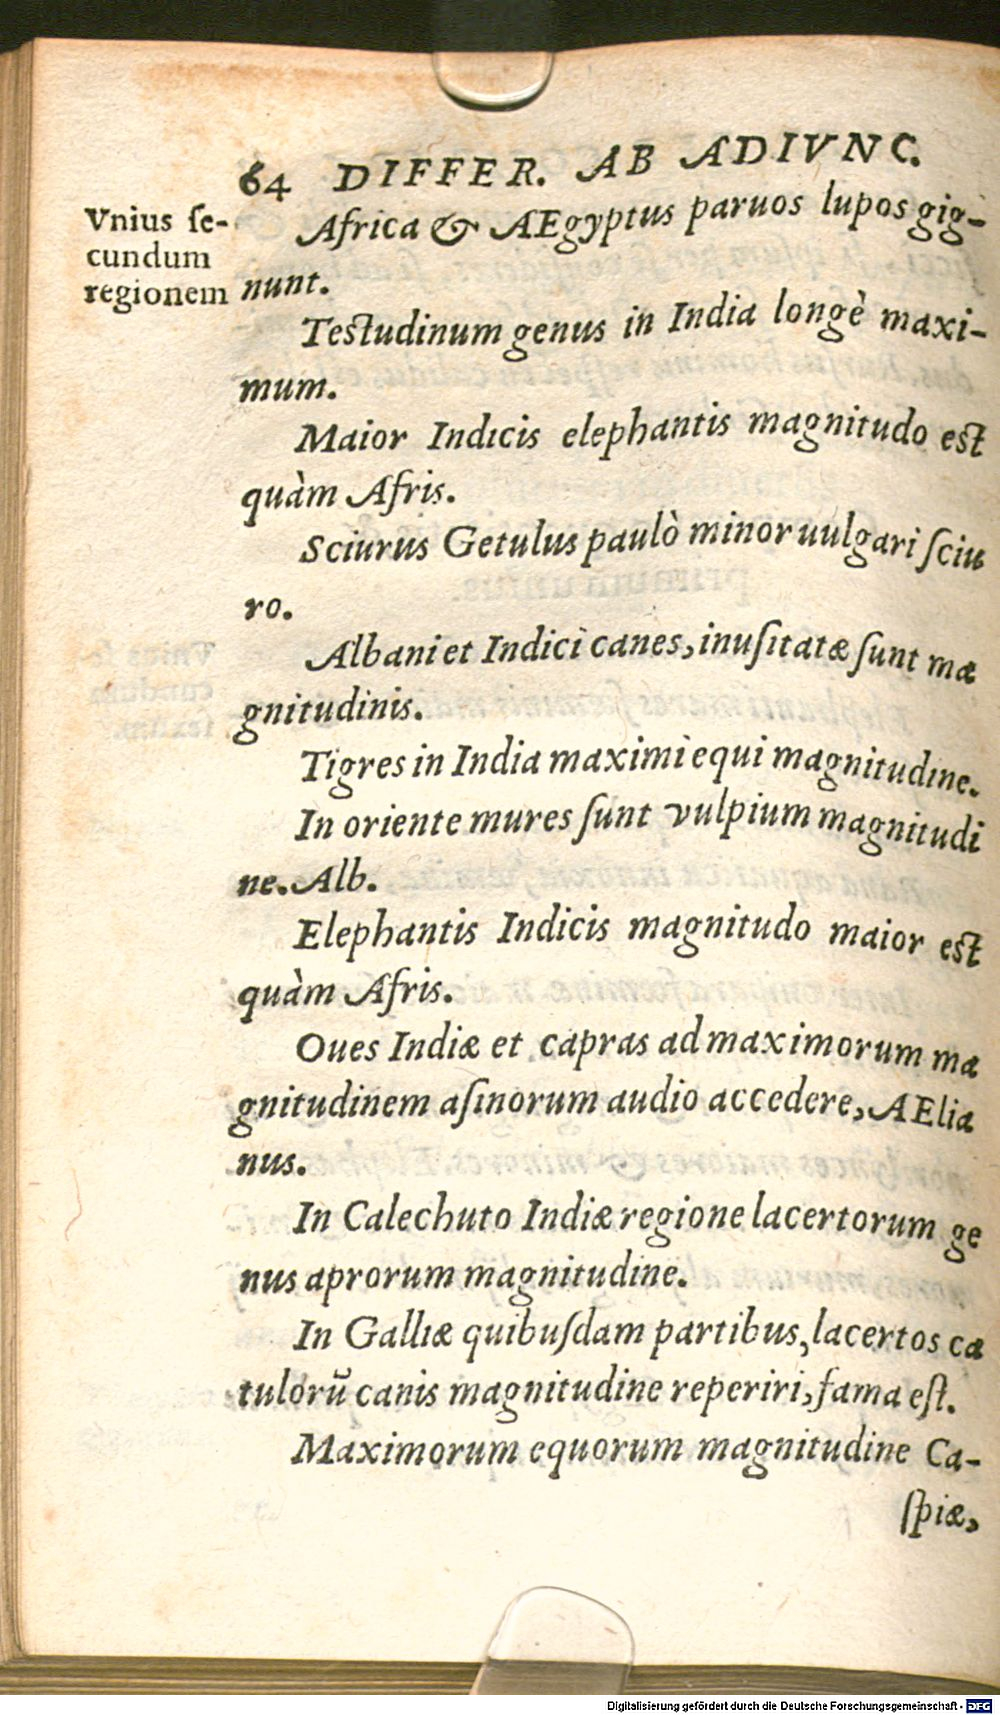 64 DIFFER. AB ADIVNC.
Vnius ſe-
cundum
regionem
Africa & AEgyptus paruos lupos gig-
nunt.
Teſtudinum genus in India longè maxi-
mum.
Maior Indicis elephantis magnitudo eſt
quàm Afris.
Sciurus Getulus paulò minor uulgari ſciu
ro.
Albani et Indici canes, inuſitatæ ſunt ma
gnitudinis.
Tigres in India maximi equi magnitudine.
In oriente mures ſunt vulpium magnitudi
ne. Alb.
Elephantis Indicis magnitudo maior eſt
quàm Afris.
Oues Indiæ et capras ad maximorum ma
gnitudinem aſinorum audio accedere, AElia
nus.
In Calechuto Indiæ regione lacertorum ge
nus aprorum magnitudine.
In Galliæ quibuſdam partibus, lacertos ca
tulorū canis magnitudine reperiri, fama eſt.
Maximorum equorum magnitudine Ca-
ſpiæ,
Digitalisierung gefördert durch die Deutsche Forschungsgemeinschaft - DFG